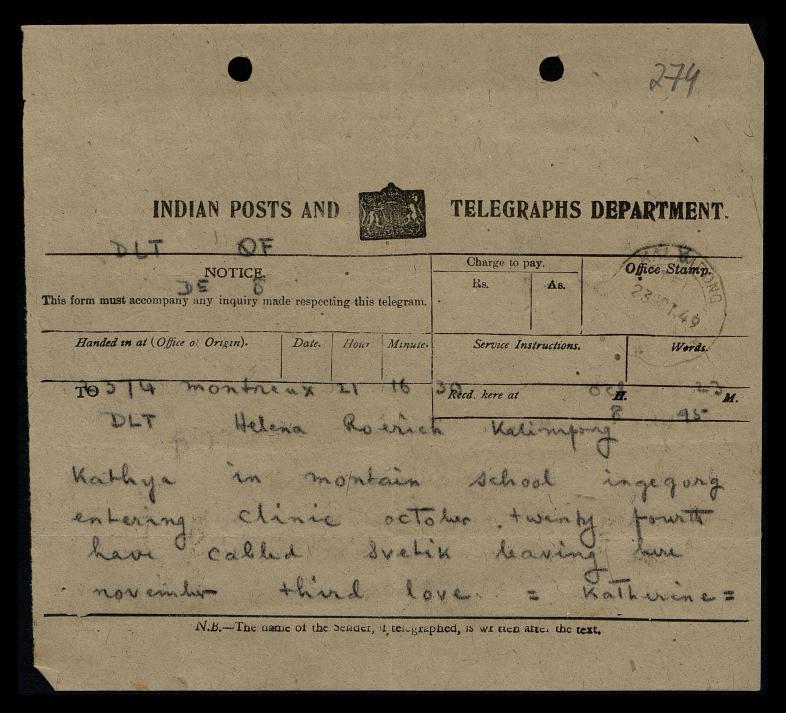 274
INDIAN POSTS AND TELEGRAPHS DEPARTMENT.
DLT QF
NOTICE.
DE 8
This form must accompany any inquiry made respecting this telegram.
Charge to pay.
Rs. As.
Office Stamp.
KALIMPONG
23 OCT.49
Handed in at (Office of Origin). Date. Hour Minute. Service Instructions. Words.
TO Recd. here at H. M.
montreux 21 16 30 Oct 23
8 45
DLT Helena Roerich Kalimpong
Kathya in montain school ingegorg
entering clinic october twenty fourth
have called Svetik leaving here
november third love = Katherine =
N.B.—The name of the Sender, if telegraphed, is written after the text.